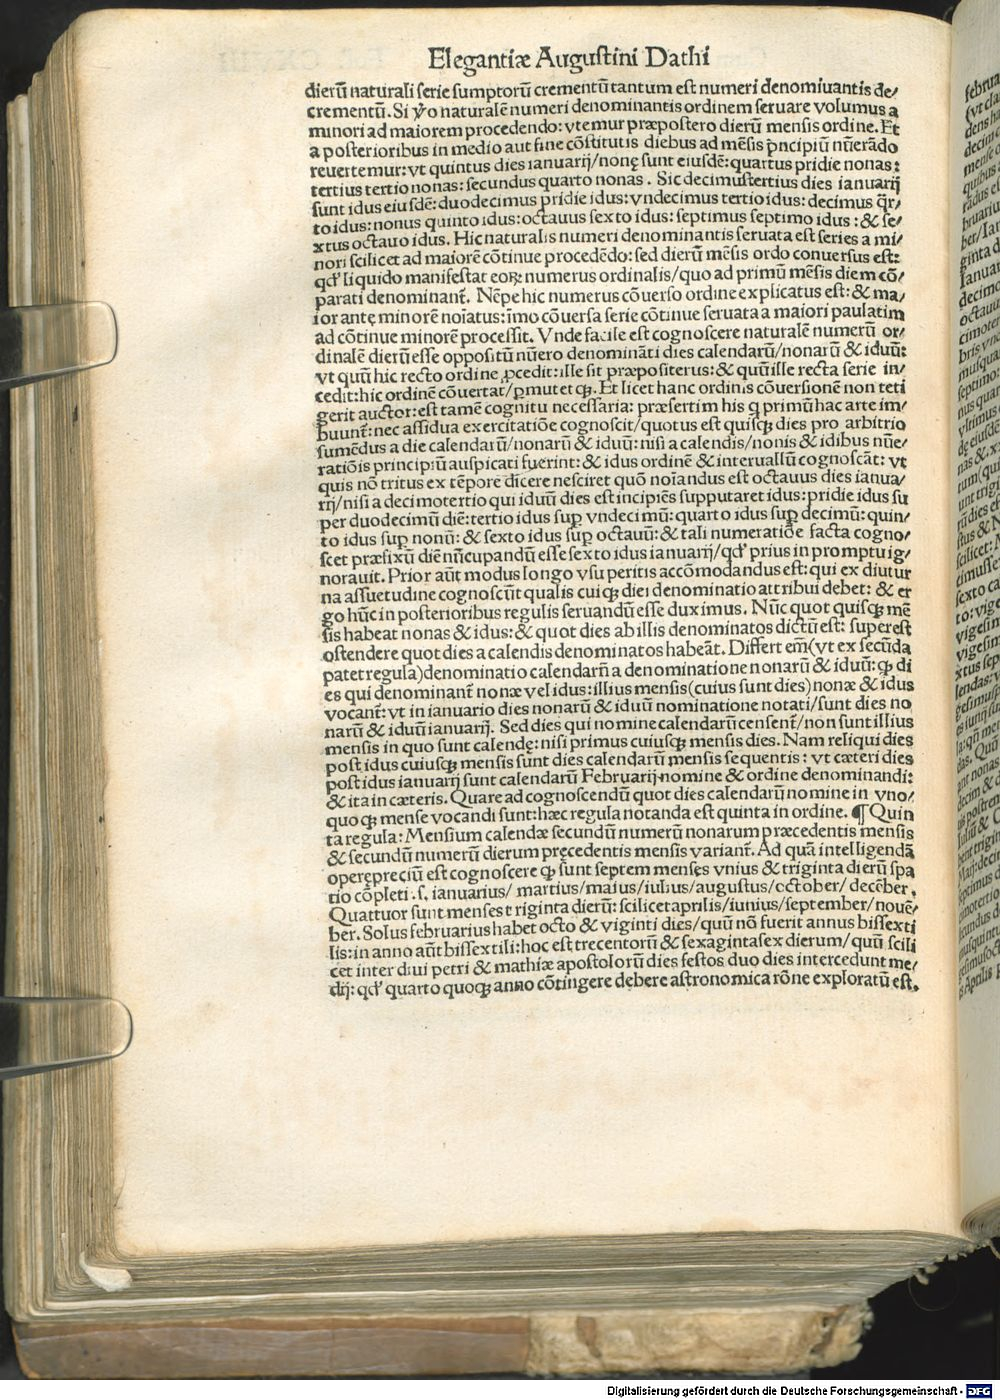 Elegantiæ Augustini Dathi
dierũ naturali serie sumptorũ crementũ tantum est numeri denomiuantis de/
crementũ. Si ṽo naturalẽ numeri denominantis ordinem seruare volumus a
minori ad maiorem procedendo: vtemur præpostero dierũ mensis ordine. Et
a posterioribus in medio aut fine cõstitutis diebus ad mẽsis p̃ncipiũ nũerãdo
reuertemur: vt quintus dies ianuarij/nonę sunt eiusdẽ: quartus pridie nonas:
tertius tertio nonas: secundus quarto nonas. Sic decimustertius dies ianuarij
sunt idus eiusdẽ: duodecimus pridie idus: vndecimus tertio idus: decimus q̃r/
to idus: nonus quinto idus: octauus sexto idus: septimus septimo idus: & se/
xtus octauo idus. Hic naturalis numeri denominantis seruata est series a mi/
nori scilicet ad maiorẽ cõtinue procedẽdo: sed dierũ mẽsis ordo conuersus est:
qđ liquido manifestat eoꝝ numerus ordinalis/quo ad primũ mẽsis diem cõ/
parati denominant̃. Nẽpe hic numerus cõuerso ordine explicatus est: & ma/
ior antę minorẽ noĩatus: ĩmo cõuersa serie cõtinue seruata a maiori paulatim
ad cõtinue minorẽ processit. Vnde facile est cognoscere naturalẽ numerũ or/
dinalẽ dierũ esse oppositũ nũero denominãti dies calendarũ/nonarũ & iduũ:
vt quũ hic recto ordine ꝓcedit: ille sit præpositerus: & quũ ille recta serie in/
cedit: hic ordinẽ cõuertat/ꝑmutetqꝫ. Et licet hanc ordinis cõuersionẽ non teti
gerit auctor: est tamẽ cognitu necessaria: præsertim his q̃ primũ hac arte im/
buunt̃: nec assidua exercitatiõe cognoscit/quotus est quisqꝫ dies pro arbitrio
sumẽdus a die calendarũ/nonarũ & iduũ: nisi a calendis/nonis & idibus nũe/
ratiõis principiũ auspicati fuerint: & idus ordinẽ & interuallũ cognoscãt: vt
quis nõ tritus ex tẽpore dicere nesciret quõ noĩandus est octauus dies ianua/
rij/nisi a decimotertio qui iduũ dies est incipiẽs supputaret idus: pridie idus su
per duodecimũ diẽ: tertio idus suꝑ vndecimũ: quarto idus suꝑ decimũ: quin/
to idus suꝑ nonũ: & sexto idus suꝑ octauũ: & tali numeratiõe facta cogno/
scet præfixũ diẽ nũcupandũ esse sexto idus ianuarij/qđ prius in promptu ig/
norauit. Prior aũt modus longo vsu peritis accõmodandus est: qui ex diutur
na assuetudine cognoscũt qualis cuiqꝫ diei denominatio attribui debet: & er
go hũc in posterioribus regulis seruandũ esse duximus. Nũc quot quisqꝫ mẽ
sis habeat nonas & idus: & quot dies ab illis denominatos dictũ est: superest
ostendere quot dies a calendis denominatos habeãt. Differt em̃(vt ex secũda
patet regula)denominatio calendarũ a denominatione nonarũ & iduũ: qꝫ di
es qui denominant̃ nonæ vel idus: illius mensis(cuius sunt dies)nonæ & idus
vocant̃: vt in ianuario dies nonarũ & iduũ nominatione notati/sunt dies no
narũ & iduũ ianuarij. Sed dies qui nomine calendarũ censent̃/non sunt illius
mensis in quo sunt calendę: nisi primus cuiusqꝫ mensis dies. Nam reliqui dies
post idus cuiusqꝫ mensis sunt dies calendarũ mensis sequentis: vt cæteri dies
post idus ianuarij sunt calendarũ Februarij nomine & ordine denominandi:
& ita in cæteris. Quare ad cognoscendũ quot dies calendarũ nomine in vno/
quoqꝫ mense vocandi sunt: hæc regula notanda est quinta in ordine. ¶ Quin
ta regula: Mensium calendæ secundũ numerũ nonarum præcedentis mensis
& secundũ numerũ dierum pręcedentis mensis variant̃. Ad quã intelligendã
operępreciũ est cognoscere qꝫ sunt septem menses vnius & triginta dierũ spa
tio cõpleti .s. ianuarius/ martius/maius/iulius/augustus/october/ decẽber.
Quattuor sunt menses triginta dierũ: scilicet aprilis/iunius/september/nouẽ/
ber. Solus februarius habet octo & viginti dies/quũ nõ fuerit annus bissexti
lis: in anno aũt bissextili: hoc est trecentorũ & sexagintasex dierum/quũ scili
cet inter diui petri & mathiæ apostolorũ dies festos duo dies intercedunt me/
dij: qđ quarto quoqꝫ anno cõtingere debere astronomica rõne exploratũ est.
Digitalisierung gefördert durch die Deutsche Forschungsgemeinschaft - DFG